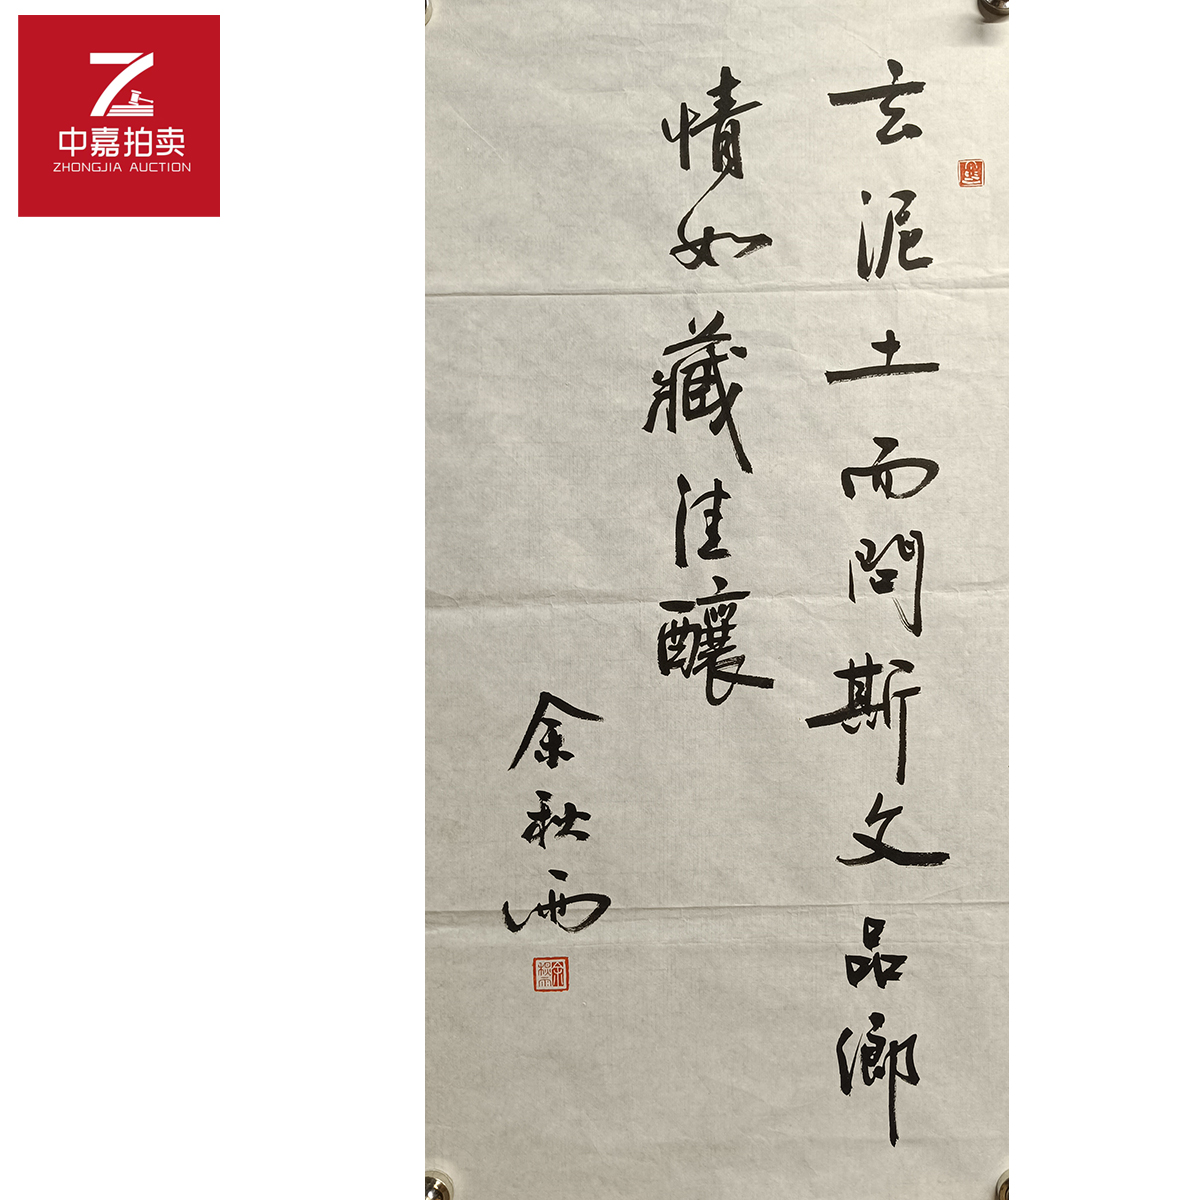 中嘉拍卖
ZHONGJIA AUCTION
玄泥土而問斯文品鄉
情如藏佳釀
余秋雨
余秋雨